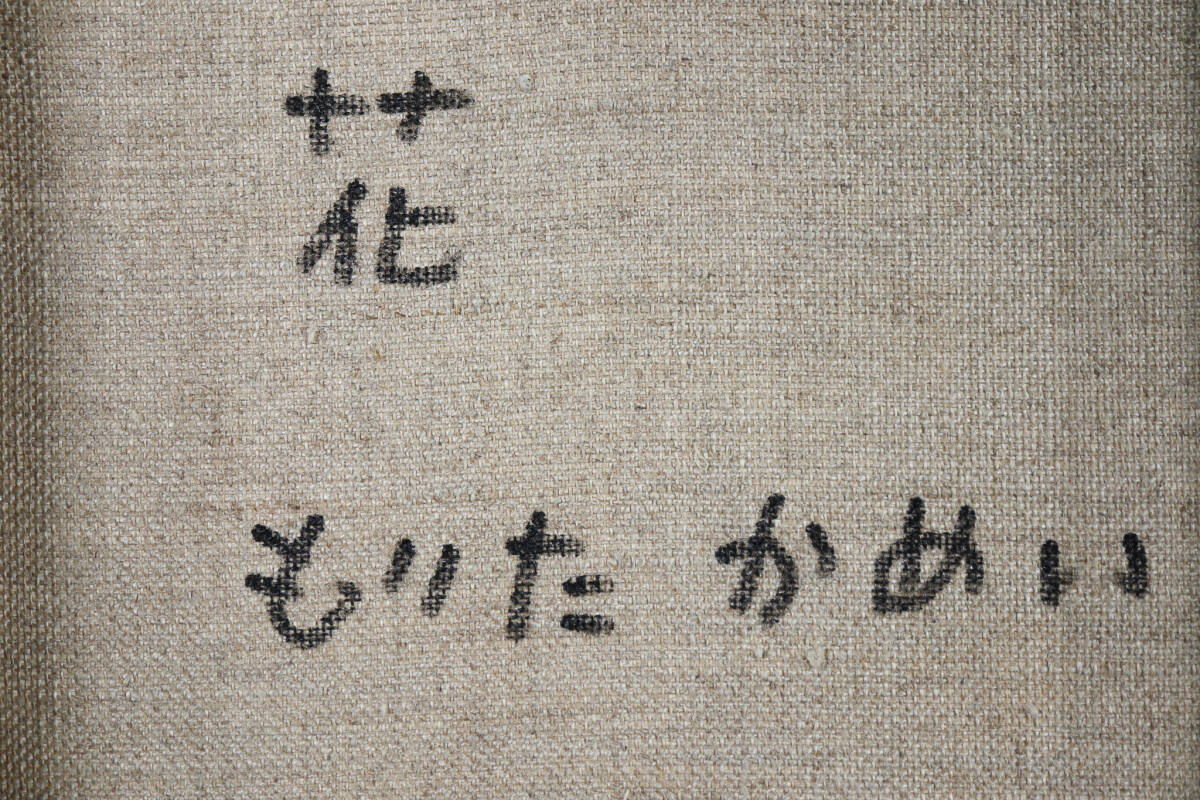 花
もりた かめい